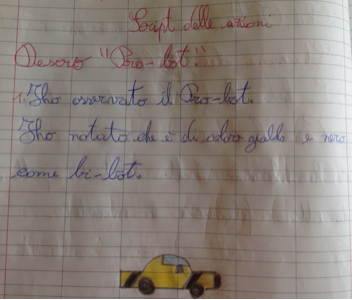 Script delle azioni
Descrivo "Pro-bot."
1. Io ho osservato il Pro-bot.
Io ho notato che è di colore giallo e nero
come bi-bot.